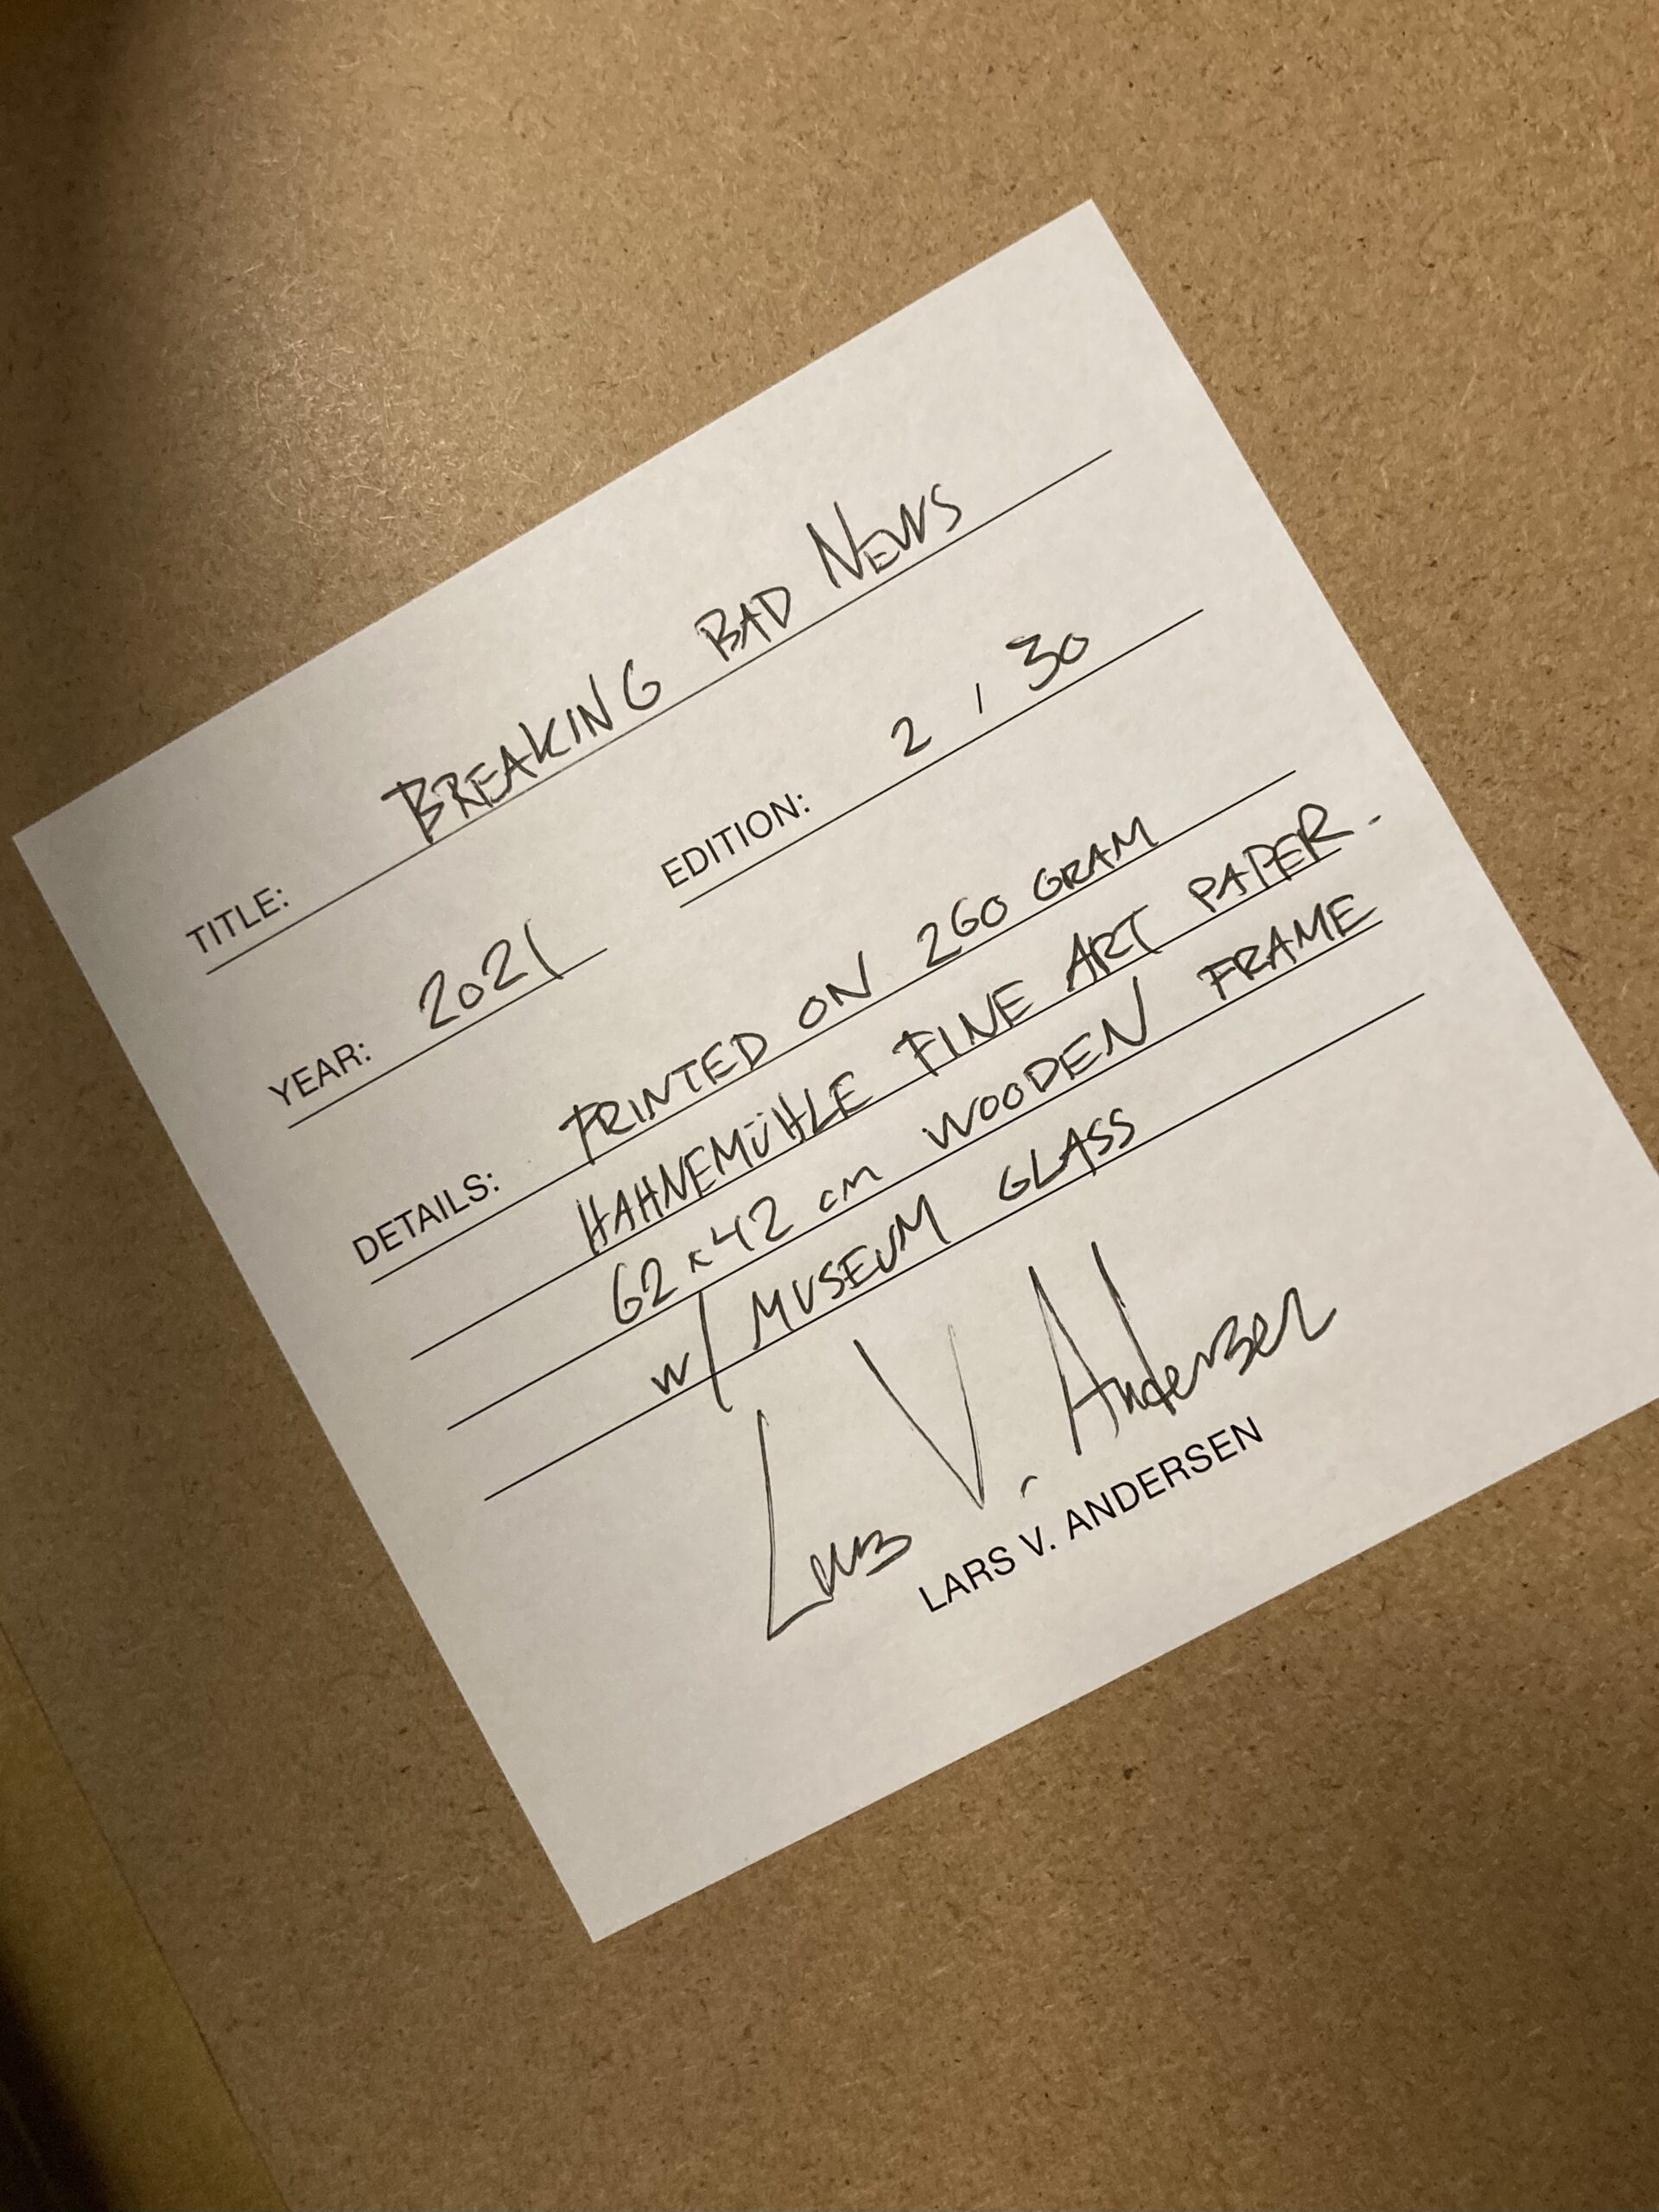 TITLE: BREAKING BAD NEWS
YEAR: 2021 EDITION: 2 / 30
DETAILS: PRINTED ON 260 GRAM
HAHNEMÜHLE FINE ART PAPER.
62x42 cm WOODEN FRAME
w/ MUSEUM GLASS
Lars V. Andersen
LARS V. ANDERSEN